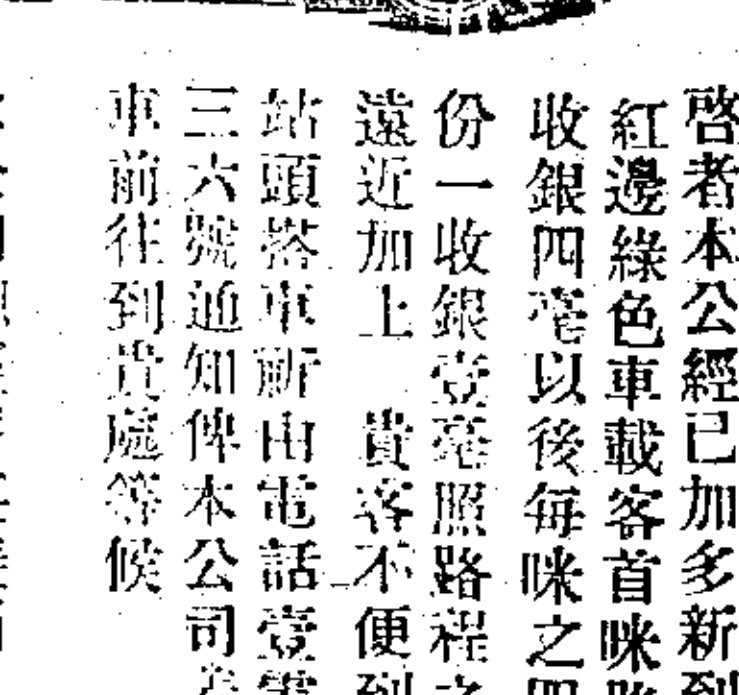 啓者本公經已加多新到
紅邊綠色車載客首咪路
收銀四毫以後每咪之四
份一收銀壹毫照路程之
遠近加上 貴客不便到
站頭搭車祈由電話壹零
三六號通知俾本公司
車前往到貴處等候